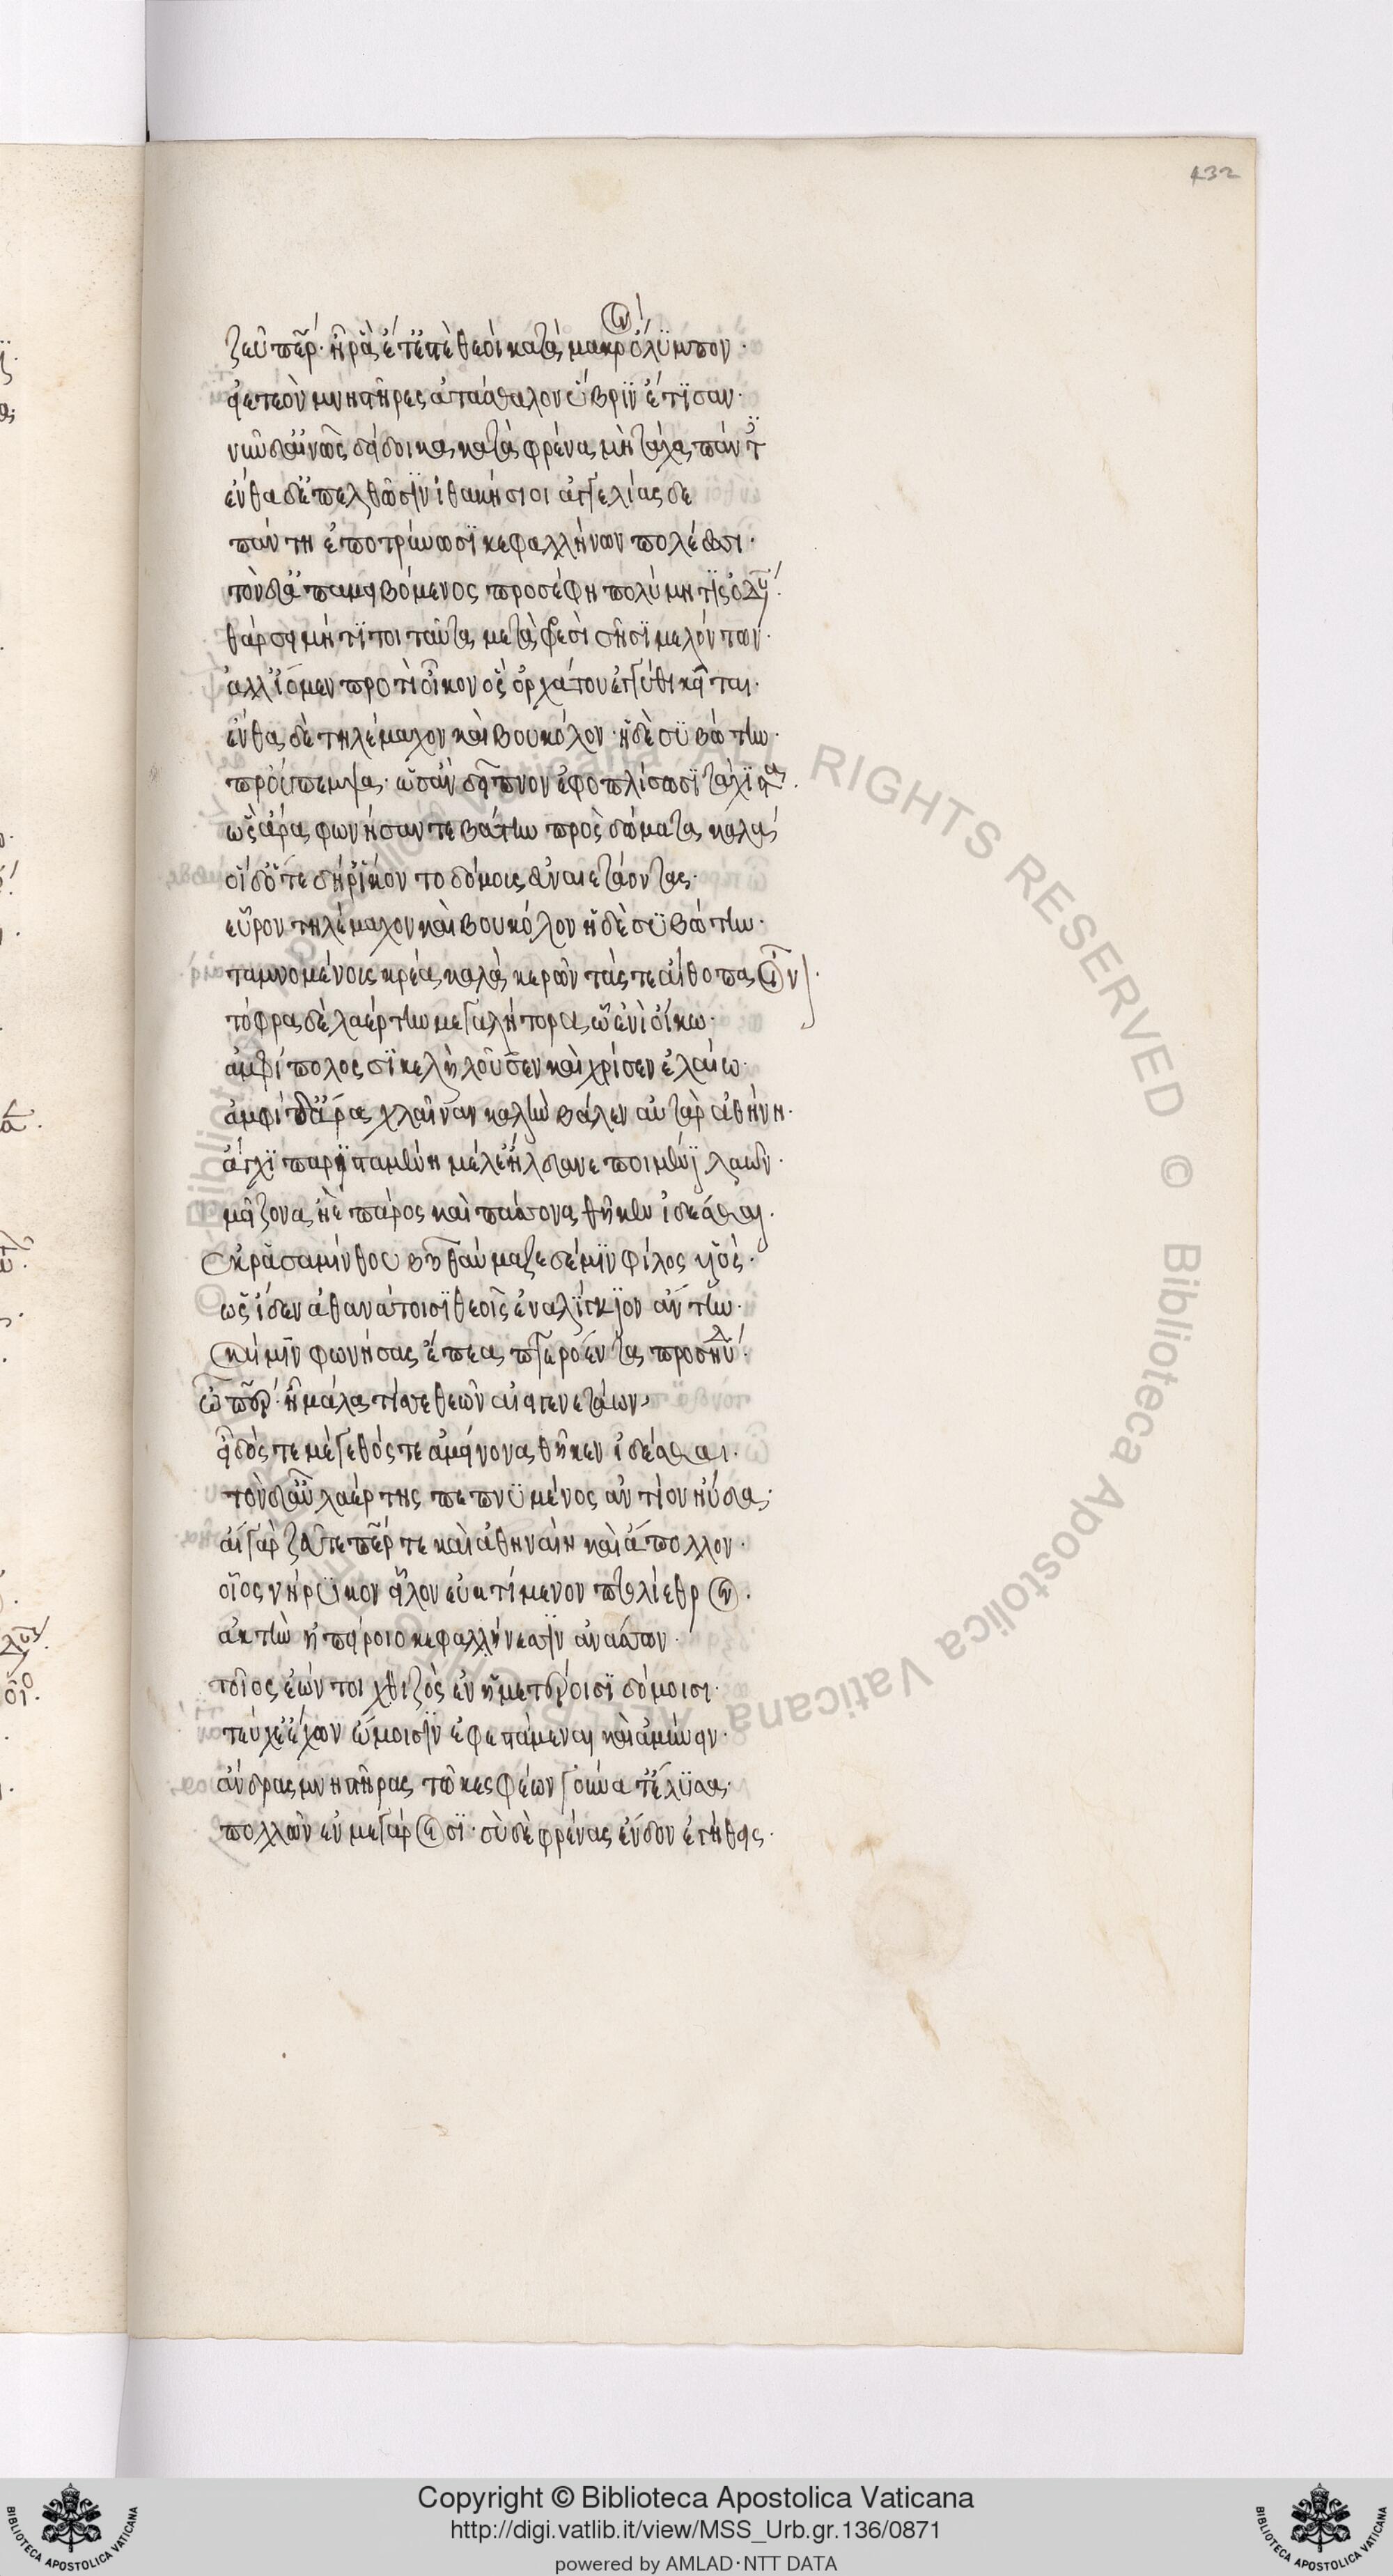 432
ζεῦ πε̃ρ· ἦ ῥὰ ἔτ' ἔστὲ θεοὶ κατὰ μακρὸν ὄλϋμπον·
εἰ ἐτεὸν μνηστῆρες ἀτάσθαλον ὕβρϊν ἔτϊσαν·
νῦν δ' αἰνῶς δείδοικα κατὰ φρένα μὴ τάχα πάντ
ἐνθάδ' ἐπέλθωσϊν ἰθακήσιοι ἀγγελίας δὲ
πάντη ἐποτρύνωσϊ κεφαλλήνων πολέεσσι·
τὸν δ' ἀπαμειβόμενος προσέφη πολύμητϊς ὀδυ
θάρσει μή τϊ τοι ταῦτα μετὰ φρεσὶ σῆσϊ μελόντων·
ἀλλ' ἴομεν προτὶ οἶκον ὃς ὀρχάτου ἐγγύθι κεῖται·
ἔνθα δὲ τηλέμαχον καὶ βουκόλον ἠδὲ σϋβώτην·
προὔπεμψα· ὡς ἂν δεῖπνον ἐφοπλίσωσϊ τάχϊστα·
ὣς ἄρα φωνήσαντε βάτην πρὸς δώματα καλά
οἱ δ' ὅτε δή ῥ' ἵκοντο δόμους εὐναιετάοντας·
εὗρον τηλέμαχον καὶ βουκόλον ἠδὲ σϋβώτην·
ταμνομένους κρέα καλὰ κερῶντάς τε αἴθοπα οἶν
τόφρα δὲ λαέρτην μεγαλήτορα ᾧ ἐνὶ οἴκω·
ἀμφίπολος σϊκελὴ λοῦσεν καὶ χρίσεν ἐλαίω·
ἀμφὶ δ' ἄρα χλαῖναν καλὴν βάλεν αὐτὰρ ἀθήνη·
ἄγχϊ παρϊσταμένη μέλε' ἤλδανε ποιμένϊ λαῶν·
μείζονα ἠὲ πάρος καὶ πάσσονα θῆκεν ἰδέσθαι·
ἐκ ῥ' ἀσαμίνθου βῆ θαύμαζε δέ μϊν φίλος υἱός·
ὡς ἴδεν ἀθανάτοισϊ θεοῖς ἐναλίγκϊον ἄντην·
καί μϊν φωνήσας ἔπεα πτερόεντα προσηύδ
ὦ πάτερ· ἦ μάλα τίς σε θεῶν αἰειγενετάων
εἶδός τε μέγεθός τε ἀμείνονα θῆκεν ἰδέσθαι·
τὸν δ' αὖ λαέρτης πεπνϋμένος ἀντίον ηὔδα·
αἲ γὰρ ζεῦ τε πε̃ρ τε καὶ ἀθηναίη καὶ ἄπολλον·
οἷος νήρϊκον εἷλον εὐκτίμενον πτολίεθρον·
ἀκτὴν ἠπείροιο κεφαλλήνεσσϊν ἀνάσσων·
τοῖος ἐών τοι χθιζὸς ἐν ἡμετέροισϊ δόμοισι·
τεύχε' ἔχων ὤμοισϊν ἐφεστάμεναι καὶ ἀμύνειν·
ἄνδρας μνηστῆρας τῶ κε σφέων γούνατ' ἔλϋσα·
πολλῶν ἐν μεγάροισϊ· σὺ δὲ φρένας ἔνδον ἐγήθεις·
© Biblioteca Apostolica Vaticana ALL RIGHTS RESERVED © Biblioteca Apostolica Vaticana
Copyright © Biblioteca Apostolica Vaticana
http://digi.vatlib.it/view/MSS_Urb.gr.136/0871
powered by AMLAD·NTT DATA
BIBLIOTECA APOSTOLICA VATICANA
BIBLIOTECA APOSTOLICA VATICANA